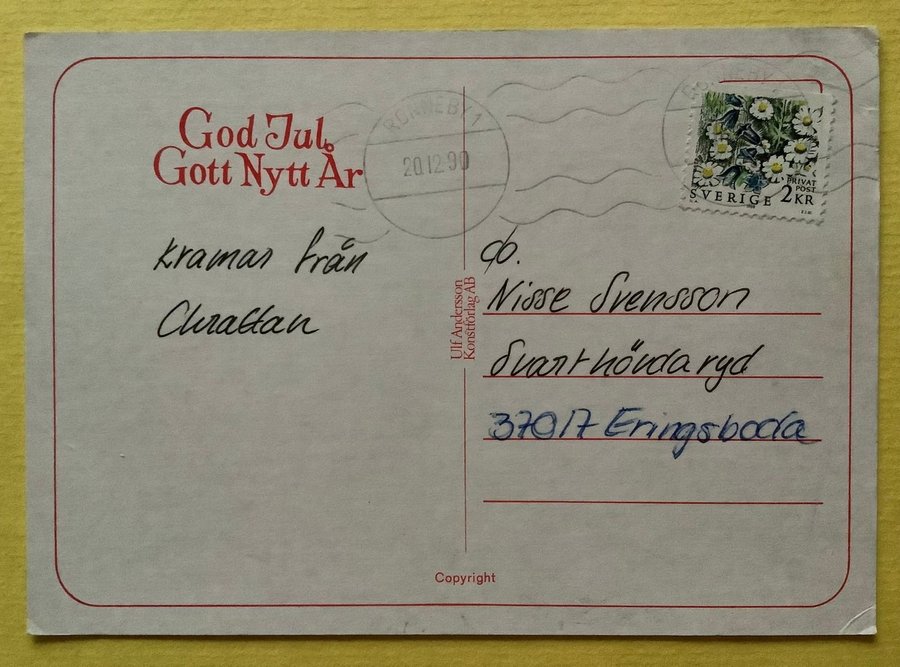 God Jul
Gott Nytt År
RONNEBY 1
20.12.90
SVERIGE 2 KR
PRIVAT
POST
Kramar från
c/o.
Nisse Svensson
Svarthövdaryd
37017 Eringsboda
Ulf Andersson
Konstförlag AB
Copyright